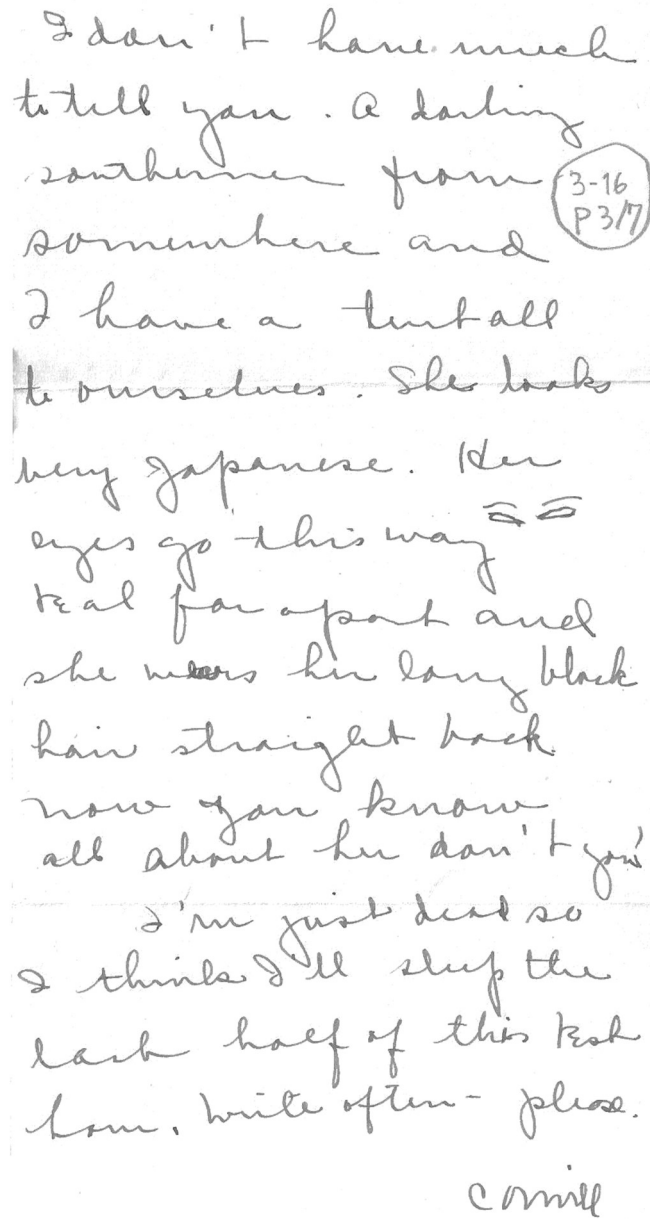 I don't have much
to tell you. A darling
southerner from
3-16
P 3/7
somewhere and
I have a tent all
to ourselves. She looks
very Japanese. Her
eyes go this way
real far apart and
she wears her long black
hair straight back
now you know
all about her don't you?
I'm just dead so
I think I'll sleep the
last half of this rest
hour. Write often - please.